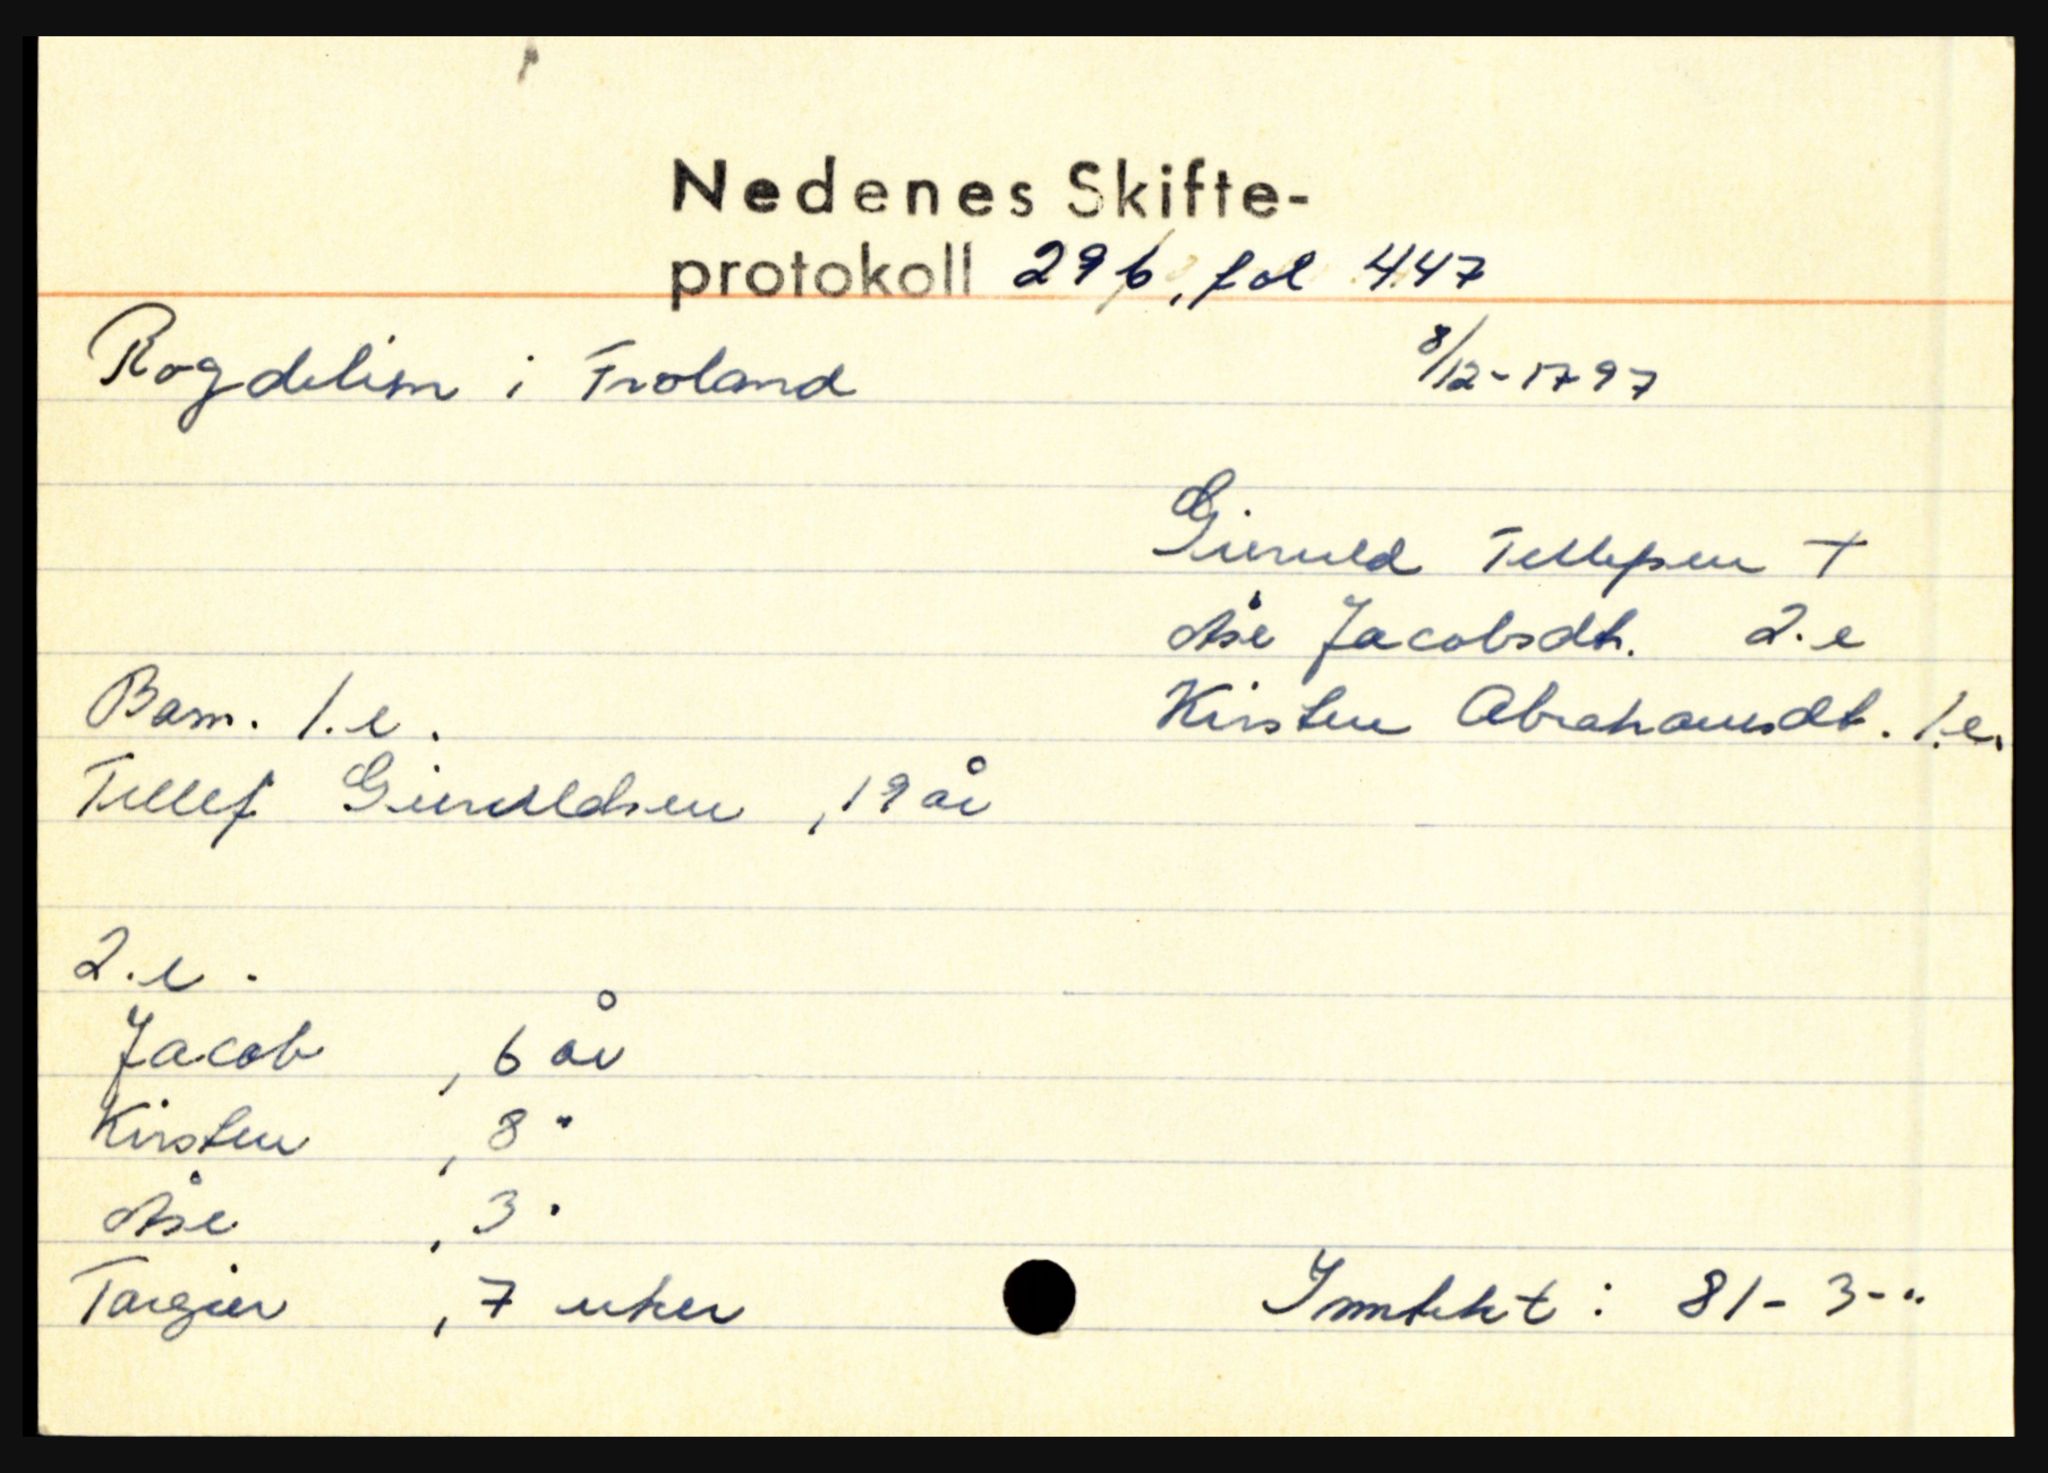 Nedenes Skifte-
protokoll 29 b, fol 447
Rogdelien i Froland 8/12-1797
Gieruld Tellefsen +
Åse Jacobsdt. 2.e
Barn. 1.e. Kirsten Abrahamsdt. 1.e.
Tellef Gieruldsen , 19 år
2.e.
Jacob , 6 år
Kirsten , 8 "
Åse , 3 "
Targier , 7 uker Inntekt : 81- 3-"